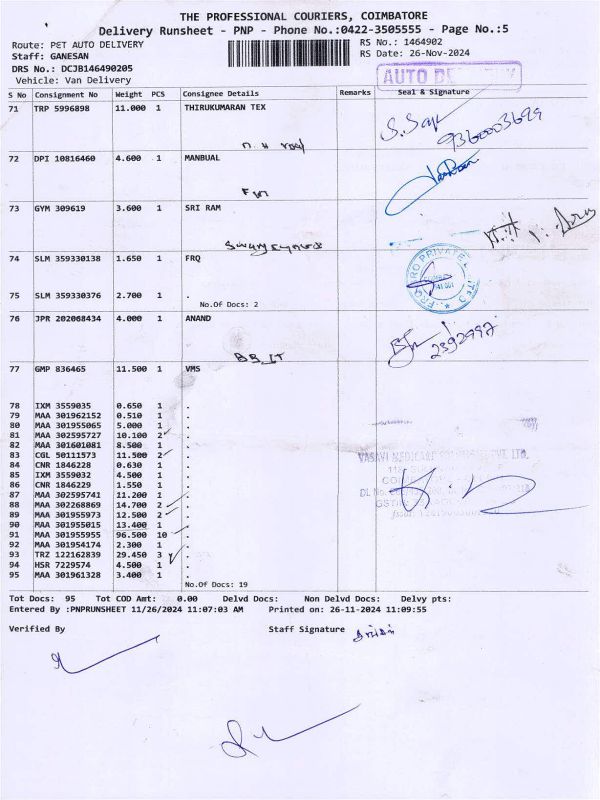 THE PROFESSIONAL COURIERS, COIMBATORE
Delivery Runsheet - PNP - Phone No.:0422-3505555 - Page No.:5
Route: PET AUTO DELIVERY RS No.: 1464902
Staff: GANESAN RS Date: 26-Nov-2024
DRS No.: DCJB146490205
Vehicle: Van Delivery
S No Consignment No Weight PCS Consignee Details Remarks Seal & Signature
71 TRP 5996898 11.000 1 THIRUKUMARAN TEX
9360003699
72 DPI 10816460 4.600 1 MANBUAL
73 GYM 309619 3.600 1 SRI RAM
74 SLM 359330138 1.650 1 FRQ
75 SLM 359330376 2.700 1 .
No.Of Docs: 2
76 JPR 202068434 4.000 1 ANAND
77 GMP 836465 11.500 1 VMS
78 IXM 3559035 0.650 1 .
79 MAA 301962152 0.510 1 .
80 MAA 301955065 5.000 1 .
81 MAA 302595727 10.100 2 .
82 MAA 301601081 8.500 1 .
83 CGL 50111573 11.500 2 .
84 CNR 1846228 0.630 1 .
85 IXM 3559032 4.500 1 .
86 CNR 1846229 1.550 1 .
87 MAA 302595741 11.200 1 .
88 MAA 302268869 14.700 2 .
89 MAA 301955973 12.500 2 .
90 MAA 301955015 13.400 1 .
91 MAA 301955955 96.500 10 .
92 MAA 301954174 2.300 1 .
93 TRZ 122162839 29.450 3 .
94 HSR 7229574 4.500 1 .
95 MAA 301961328 3.400 1 .
No.Of Docs: 19
Tot Docs: 95 Tot COD Amt: 0.00 Delvd Docs: Non Delvd Docs: Delvy pts:
Entered By :PNPRUNSHEET 11/26/2024 11:07:03 AM Printed on: 26-11-2024 11:09:55
Verified By Staff Signature